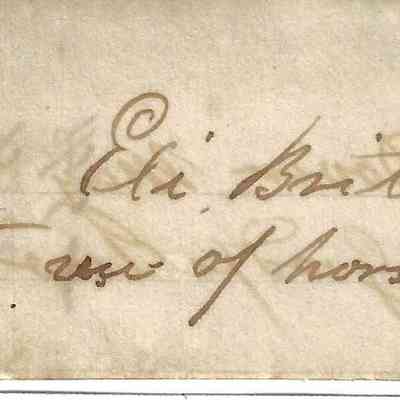 Eli Brit
use of hors